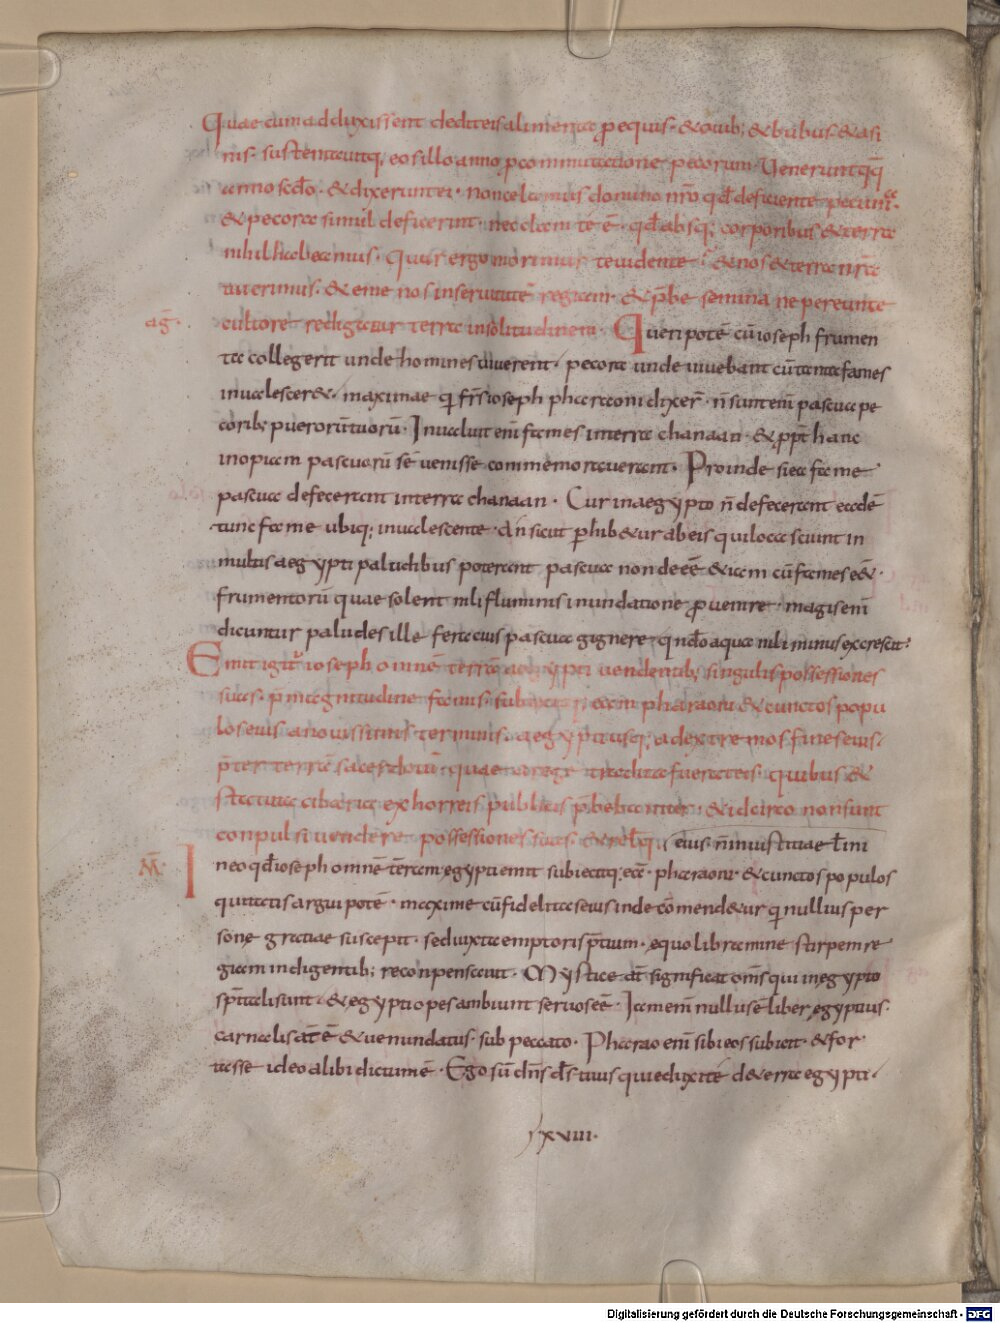 Quae cum adduxissent dedit eis alimenta p equis · & ouib; & bubus & asi
nis · sustentauitq; eos illo anno p commutatione pecorum · Uenerunt qq̄
anno scd̄o · & dixerunt ei · non celamus domino nr̄o qd̄ deficiente pecunia ·
& pecora simul defecerint · nec clam te ē · qd̄ absq; corporibus & terra
nihil habeamus · Cur ergo morimur te uidente · & nos & terra nr̄a
tui erimus · & eme nos in seruitutē regiam · & p̄be semina ne pereunte
cultore redigatur terra in solitudinem · Queri potē cū ioseph frumen
ag̅ ·
ta collegerit unde homines uiuerent · pecora unde uiuebant cū tanta fames
inualescer& · maximae qi fr̄s ioseph pharaoni dixer̄ · n̄ sunt enī pascua pe
corib; puerorū tuorū · Inualuit enī fames in terra chanaan · & ppt̄ hanc
inopiam pascuorū sē uenisse commemorauerant · Proinde si ea fame
pascua defecerant in terra chanaan · Cur in aegypto n̄ defecerant eadē
tunc fame ubiq; inualescente · An sicut phib&ur ab eis qui loca sciunt in
multis aegypti paludibus poterant pascua non deeē & iam cū fames eē& ·
frumentorū quae solent nili fluminis inundatione puenire · magis enī
dicuntur paludes ille feraciuis pascua gignere · qndo aqua nili minus excrescit ·
Emit igit̄ ioseph omnē terrā aegypti uendentib; singulis possessiones
suas · p̄ magnitudine famis · subiecitq; eam pharaoni & cunctos popu
los eius a nouissimis terminis · aegypti usq; ad extremos fines eius ·
p̄ter terrā sacerdotū · quae a rege tradita fuerat eis · quibus &
statuta cibaria ex horreis publicis p̄bebantur · & idcirco non sunt
conpulsi uendere possessiones suas · & relqi eius n̄ iniustitiae tēni
M̅ ·
In eo qd̄ ioseph omnē terram egypti emit subiecitq; eā · pharaoni · & cunctos populos
quitatis argui potē · maxime cū fidelitas eius inde cōmend&ur qi nullius per
sonę gratiae suscepit · sed iuxta emptoris p̄tium · ęquo libramine stirpem re
giam indigentib; reconpensauit · Mystice at̄ significat om̄s qui in ęgypto
sp̄italis unt · & ęgypti opes ambiunt seruos eē · Iam enī nullus ē liber ęgyptius ·
carnalis at̄ ē & uenundatus · sub peccato · Pharao enī sibi eos subiecit · & for
tasse ideo alibi dictum ē · Ego sū dn̄s d̄s tuus qui eduxi te de terra ęgypti ·
xviii ·
Digitalisierung gefördert durch die Deutsche Forschungsgemeinschaft - DFG